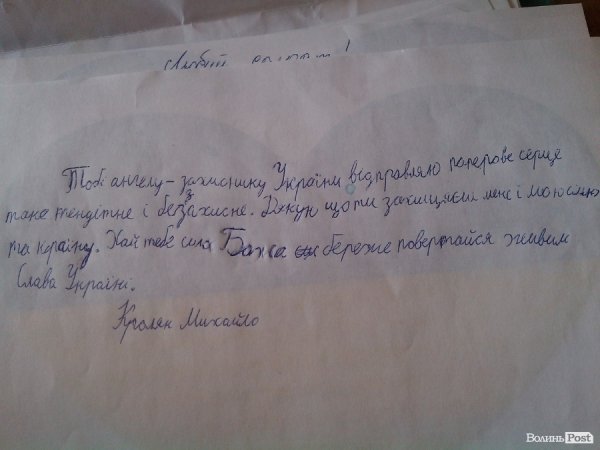 Любий
Тобі ангелу - захиснику України відправляю паперове серце
таке тендітне і беззахисне. Дякую що ти захищяєш мене і мою сімю
та країну. Хай тебе сила Божа береже повертайся живим
Слава Україні.
Михайло
ВолиньPost